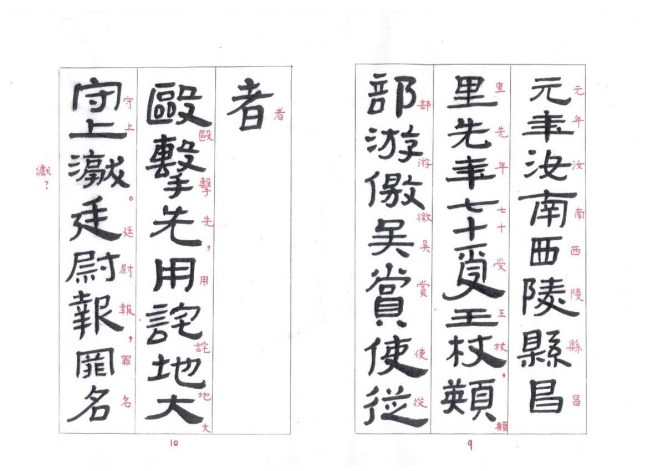 元年汝南西陵縣昌
元年汝南西陵縣昌
里先年七十受王杖類
里先年七十受王杖，類
部游徼吳賞使從
部游徼吳賞使從
9
者
者
毆擊先用詫地大
毆擊先，用詫地大
守上廷尉報罪名
守上。廷尉報，罪名
?
10